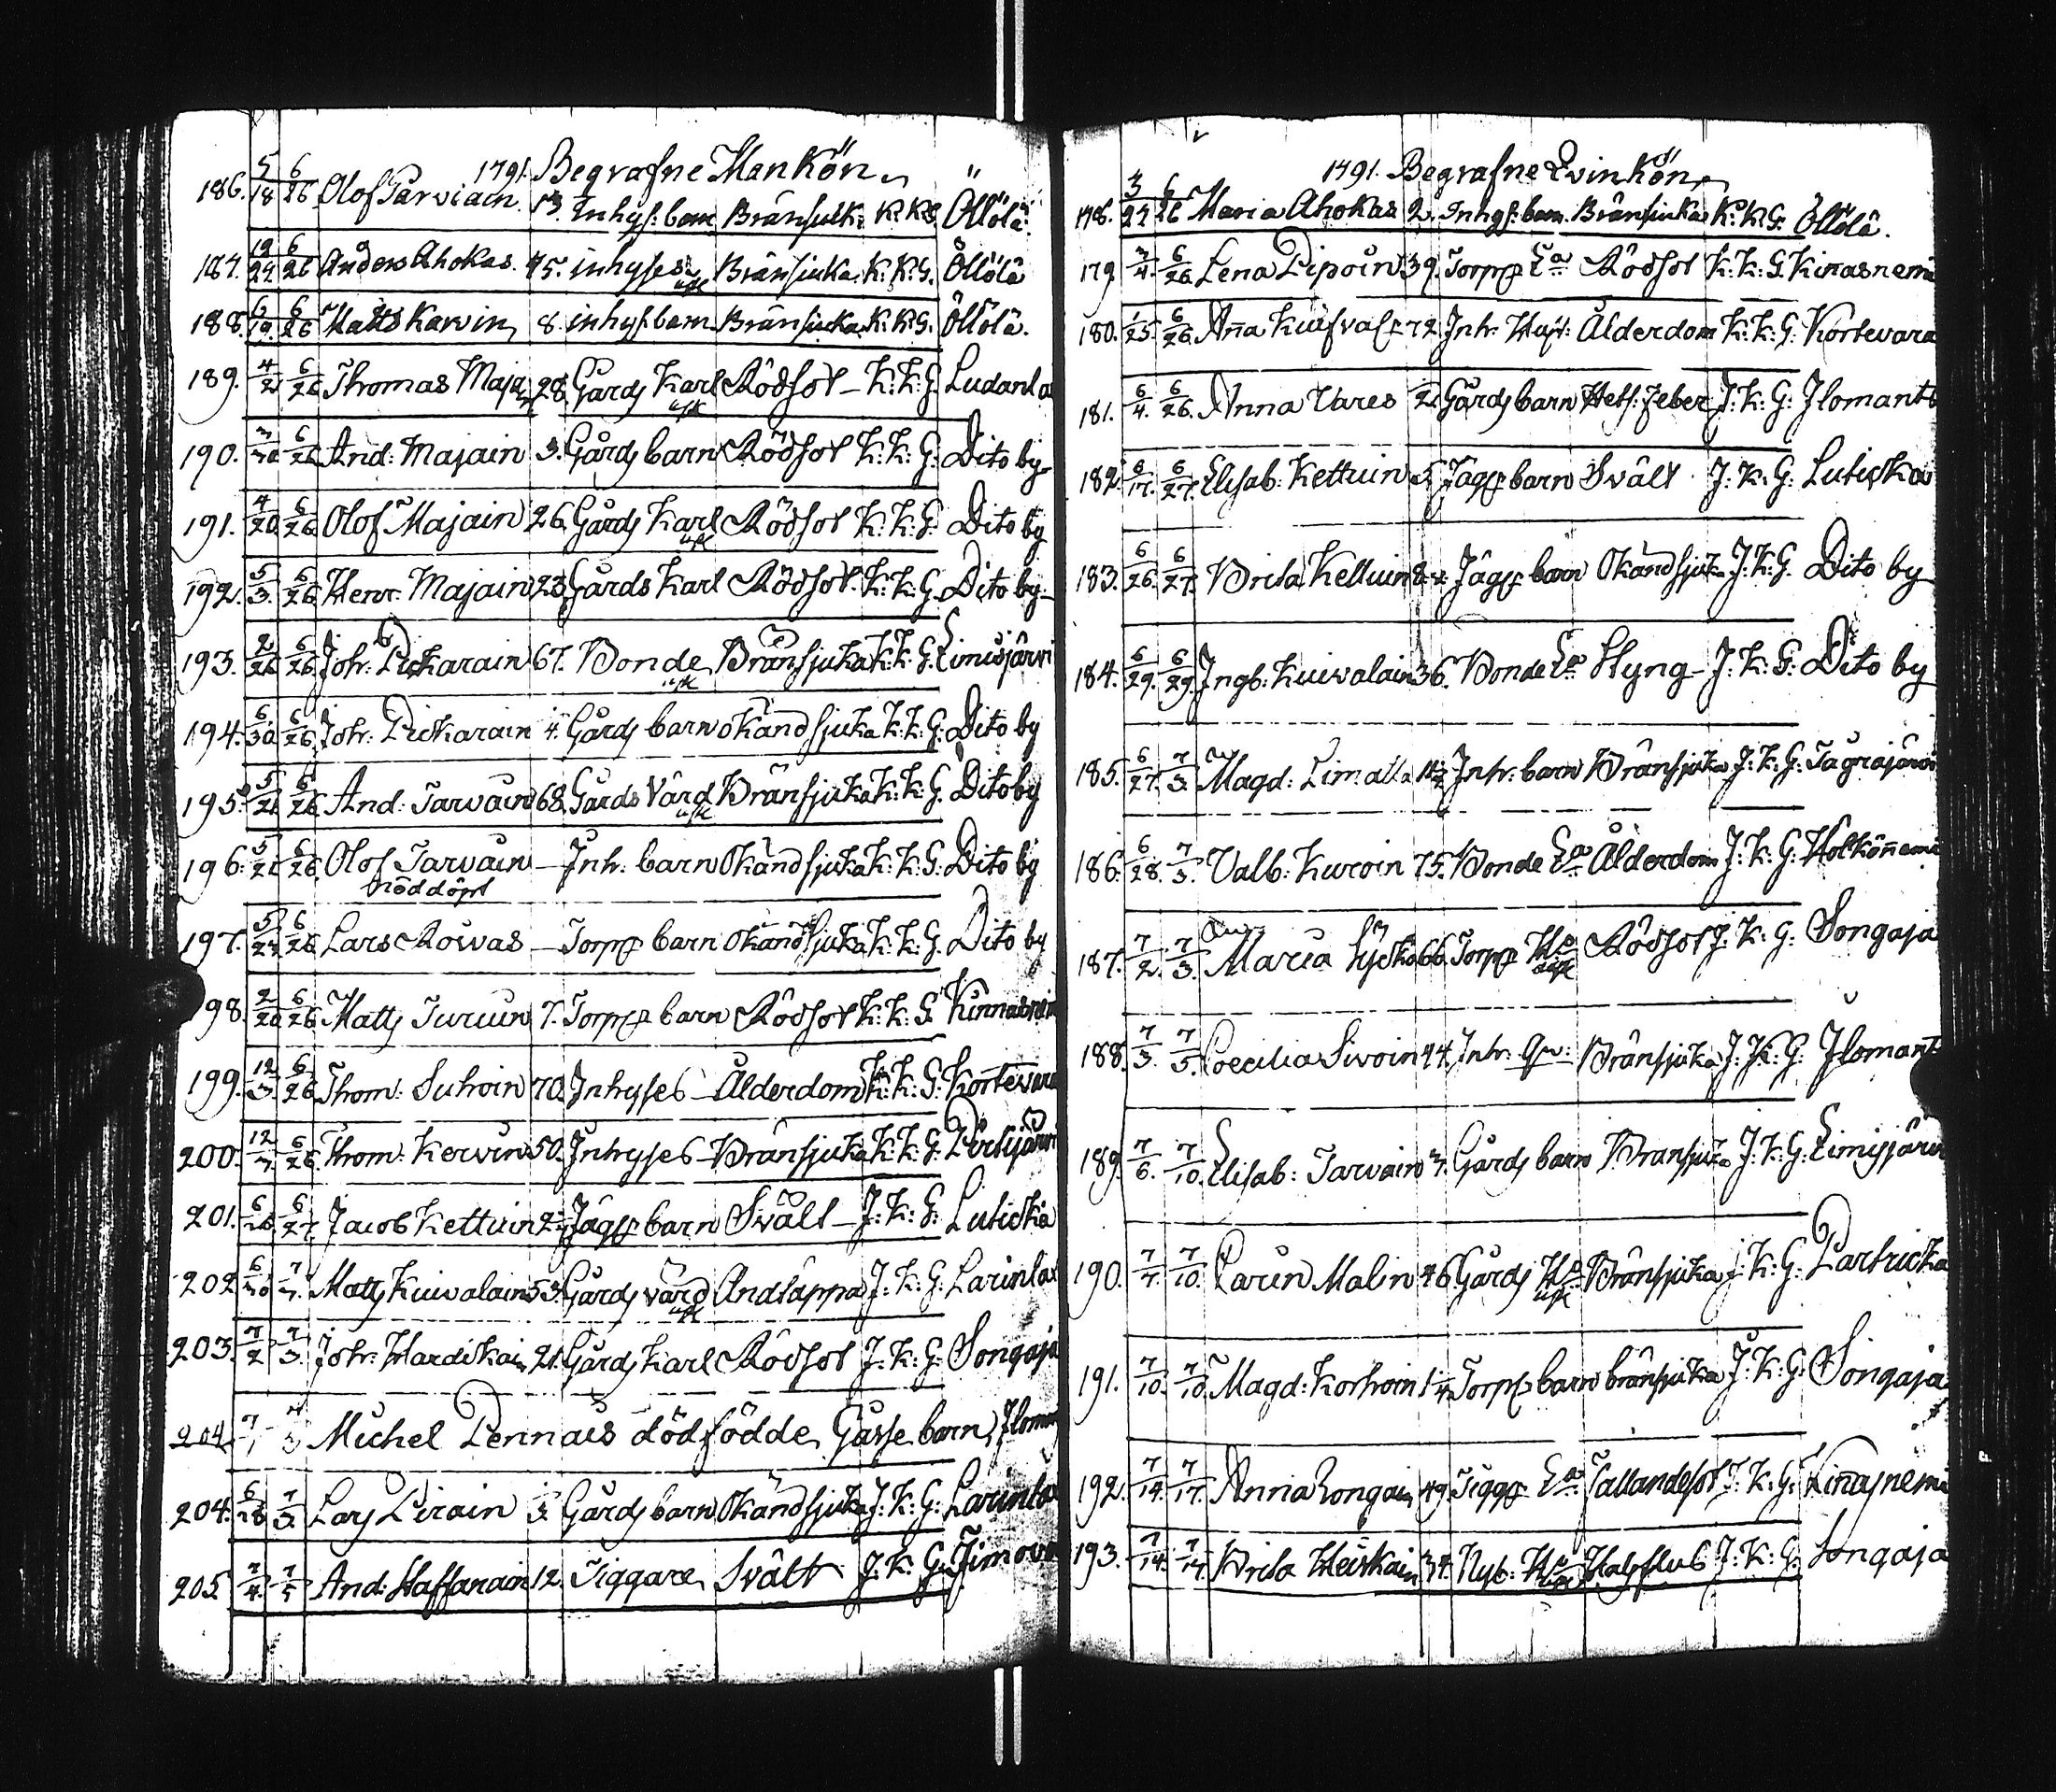 1791. Begrafne Mankön
186. 5/18 6/26 Olof Parviain. 13. Inhys: barn Bränsjuk: K. K. G. Öllölä.
187. 12/24 6/26 Anders Ahokas. 45. inhyses Bränsjuka. K. K. G. Öllölä
188. 6/19. 6/26 Matts Karvin 8. inhys: barn Bränsjuka. K. K. G. Öllölä.
189. 4/2 6/26 Thomas Maja 28. Gårds Karl Rödsot K: K: G
190. 6/26 And: Majain 3. Gårds barn Rödsot K: K: G: Dito by
191. 4/20 6/26 Olof Majain 26. Gårds Karl Rödsot K: K: G: Dito by
192. 5/3. 6/26 Henr: Majain 23. Gårds Karl Rödsot. K: K: G. Dito by
193. 2/26 6/26 Joh: Pickarain 67. Bonde Bränsjuka K: K: G. Limisjärvi
194. 6/26 Joh: Pickarain 4. Gårds barn okänd sjuka K: K: G: Dito by
195. 5/21 6/26 And: Tarvain 68. Gårds Värd Bränsjuka K: K: G. Dito by
196. 5/21 6/26. Olof Tarvain — Inh: barn Okänd sjuka K: K: G: Dito by
nöddöpt
197. 5/27 6/26 Lars Roivas — Torp: barn Okänd sjuka K: K: G. Dito by
98. 2/20 6/26 Matts Turuin 7. Torp: barn Rödsot K: K: G
199. 12/3. 6/26 Thom: Suhoin 70. Inhyses — Ålderdom K: K: G: Kortevara
200. 12/7 6/26 Thom: Kervin 50. Inhyses — Bränsjuka K: K: G.
201. 6/26 6/27. Jacob Kettuin 2 Jäg: barn Svält — J: K: G: Luticka
202. 7/3. Matts Kuivalain 53. Gårds värd Andtäppa J: K: G: Larinla
203. 7/2 7/3. Joh: Hardikain 21. Gårds Karl Rödsot J: K: G: Songaja
204. 7/1 7/3 Michel Pennais dödfödde Gässe barn, Ilom
204. 6/28 7/3. Lars Pirain 3. Gårds barn Okänd sjuka J: K: G: Larinla
205. 7/4. 7/5 And: Haffarain 12. Tiggare Svält J: K: G: Jimova
1791. Begrafne Qvinkön
178. 3/27 6/26 Maria Ahokas 2. Inhys: barn. Bränsjuka K: K: G: Öllölä.
179. 3/4. 6/26 Lena Pipoin 39. Torp: Ea Rödsot K: K: G. Kinasnemi
180. 1/25. 6/26. Anna 72. Inh: Hust: Ålderdom K: K: G: Kortevara
181. 6/4. 6/26. Anna Vares 2. Gårds barn Hets: feber J: K: G: Ilomants
182. 6/17. 6/27. Elisab: Kettuin 5. Jäg: barn Svält J: K: G: Luticka
183. 6/26. 6/27. Brita Kettuin 8 Jäg: barn Okänd sjuka J: K: G. Dito by
184. 6/29. 6/29. Ingb: Kuivalain 36. Bonde Ea Styng — J: K: G: Dito by
185. 6/27. 7/3. Magd: Limatta Inh: barn Bränsjuka J: K: G: Tagrajärvi
186. 6/28. 7/3. Valb: Kuroin 75. Bonde Ea Ålderdom J: K: G: Holkönnemi
187. 7/2. 7/3. Maria 66. Torp: Ha Rödsot J: K: G: Songaja
188. 7/3. 7/5. Coecilia Sivoin 44. Inh: Qv: Bränsjuka J: K: G: Ilomant
189. 7/6. 7/10. Elisab: Tarvain 3. Gårds barn Bränsjuka J: K: G: Limisjärvi
190. 7/7. 7/10. Carin Malin 46. Gårds Ha Bränsjuka J: K: G: Partricka
191. 7/10. 7/10. Magd: Korhoin 1 1/4 Torp: barn bränsjuka J: K: G: Songaja
192. 7/14. 7/17. Anna Rongain 49. Tigg: Ea Fallandesot J: K: G:
193. 7/14. 7/17. Brita Heiskain 34. Nyb: Ha Halsfluss J: K: G: Songaja